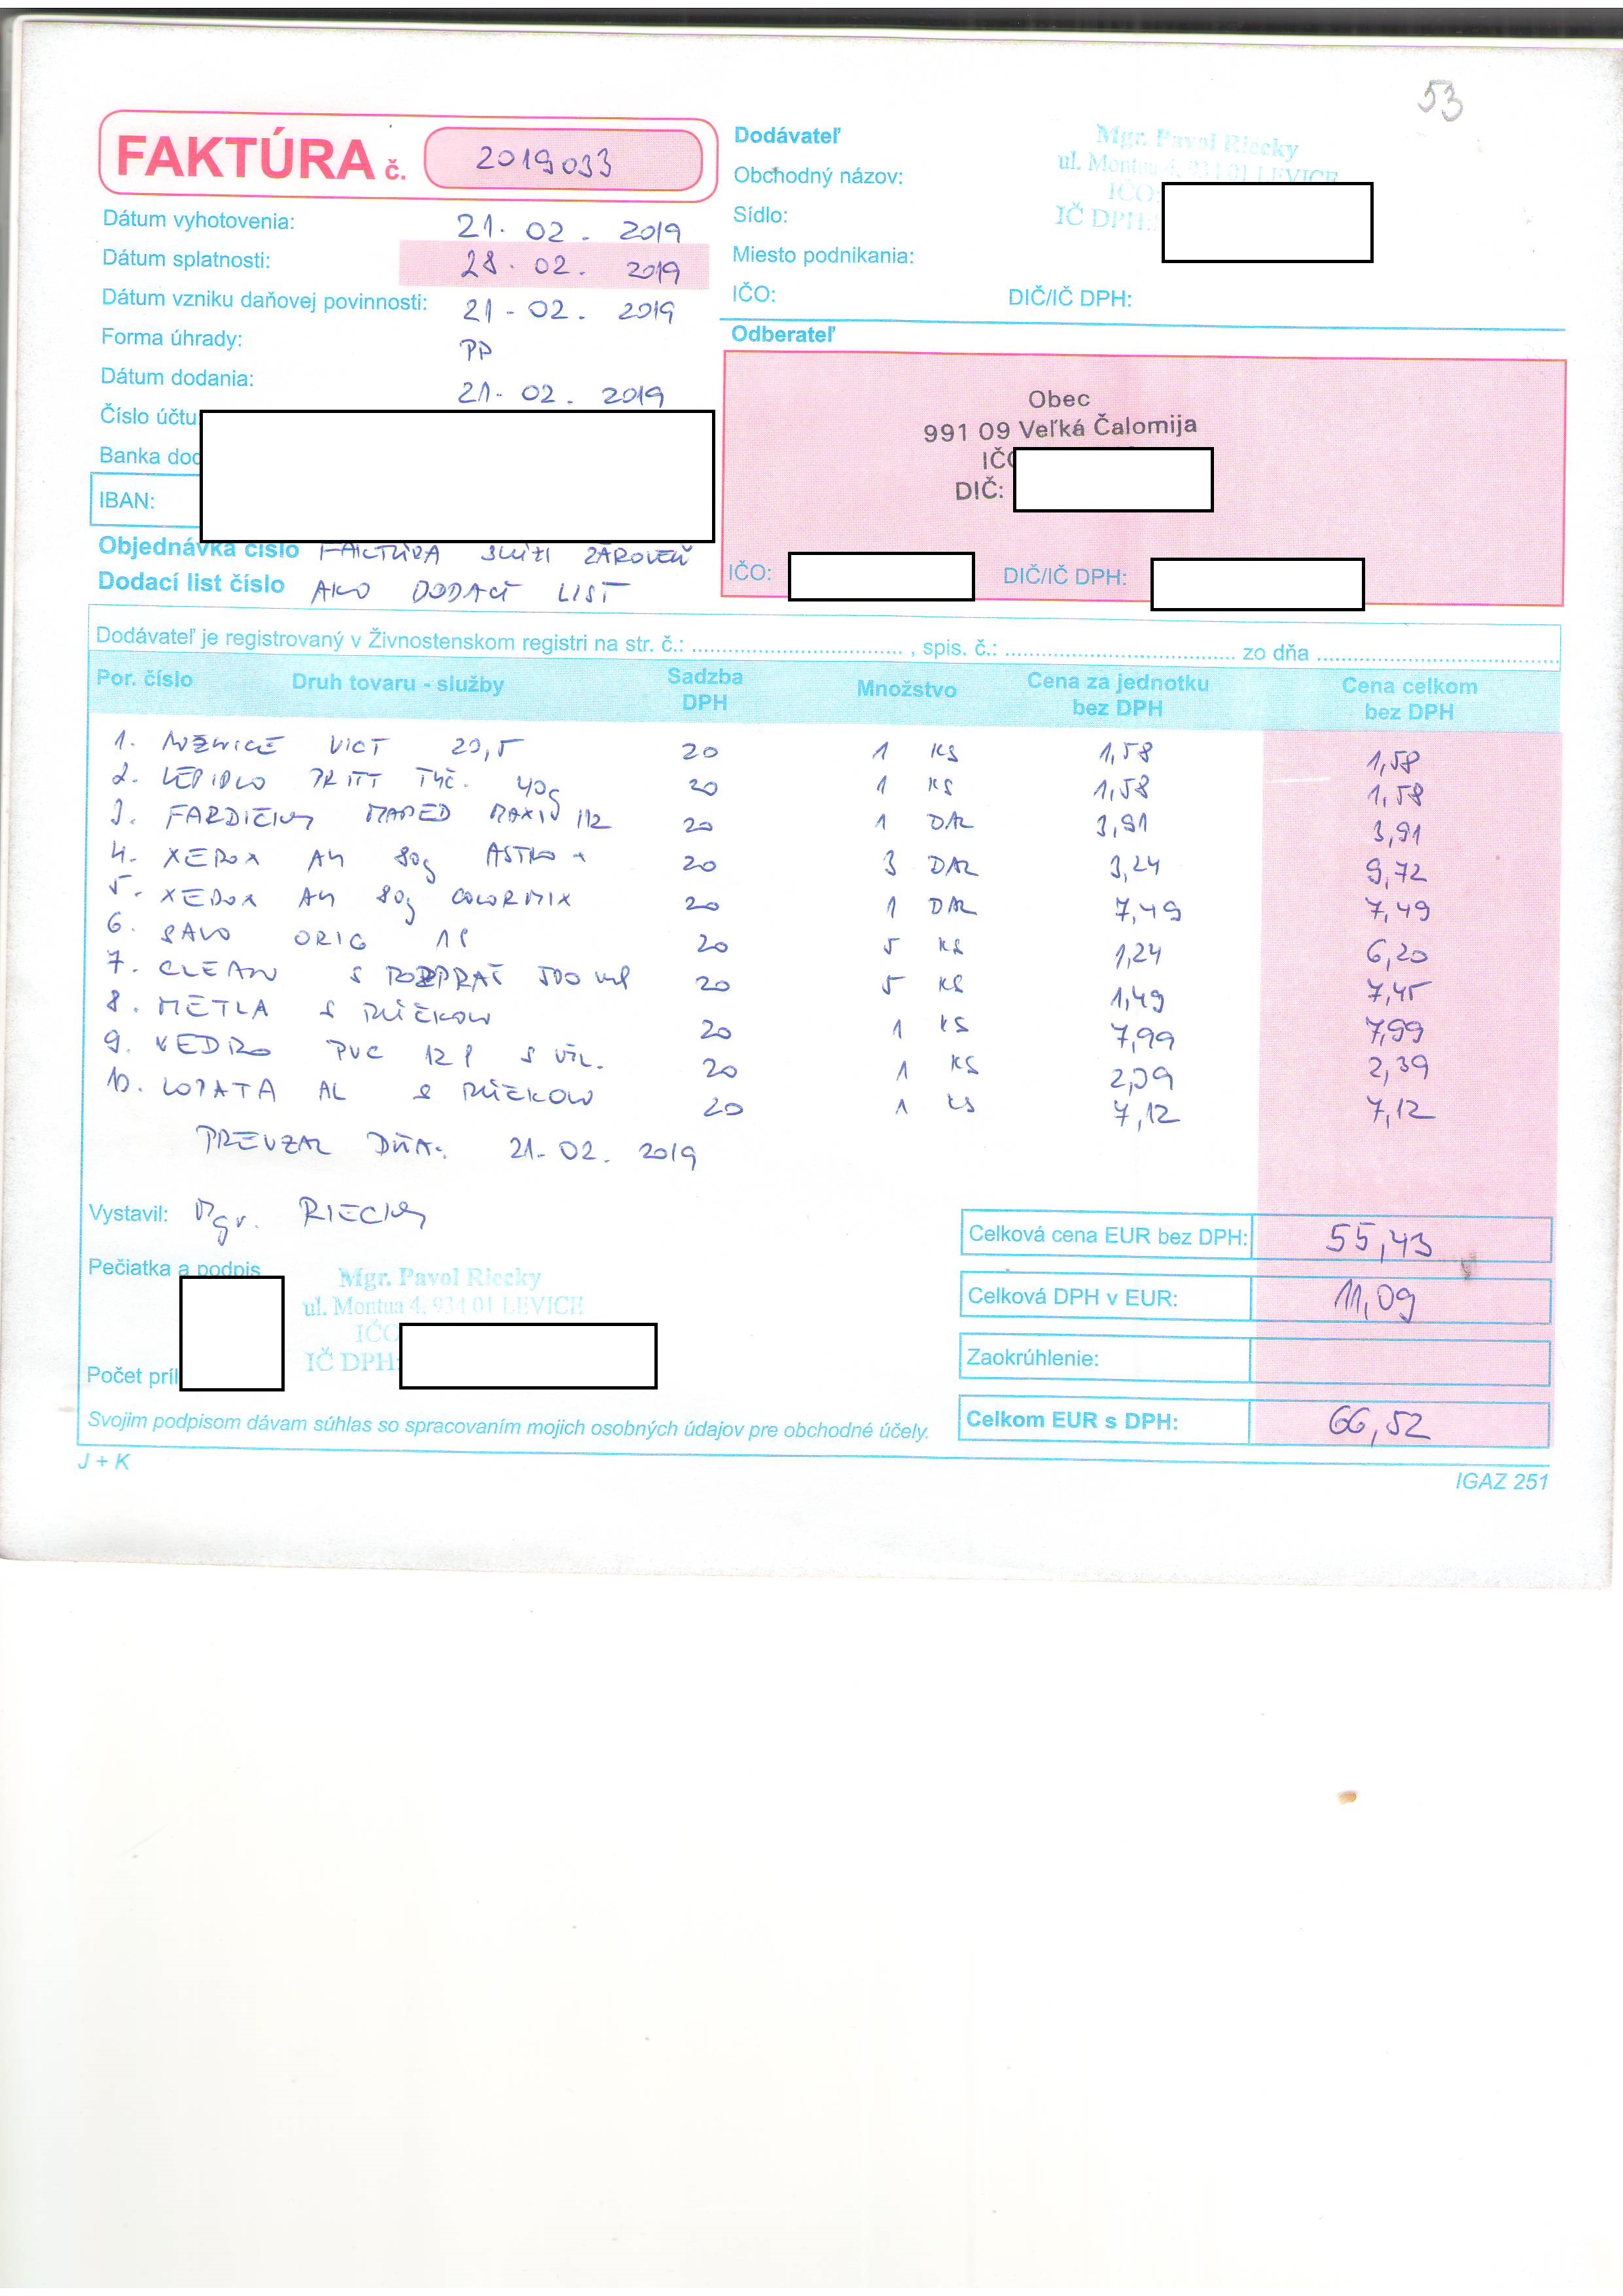 53
FAKTÚRA č. 2019033
Dátum vyhotovenia: 21. 02. 2019
Dátum splatnosti: 28. 02. 2019
Dátum vzniku daňovej povinnosti: 21-02. 2019
Forma úhrady: PP
Dátum dodania: 21-02. 2019
Číslo účtu
Banka dod
IBAN:
Objednávka číslo FAKTÚRA SLÚŽI ZÁROVEŇ
Dodací list číslo AKO DODACÍ LIST
Dodávateľ
Mgr. Pavol Riecky
ul. Montua 4, 934 01 LEVICE
IČO:
IČ DPH:
Obchodný názov:
Sídlo:
Miesto podnikania:
IČO: DIČ/IČ DPH:
Odberateľ
Obec
991 09 Veľká Čalomija
IČO
DIČ:
IČO: DIČ/IČ DPH:
Dodávateľ je registrovaný v Živnostenskom registri na str. č.: , spis. č.: zo dňa
Por. číslo Druh tovaru - služby Sadzba DPH Množstvo Cena za jednotku bez DPH Cena celkom bez DPH
1. NOŽNICE 20,5 20 1 KS 1,58 1,58
2. LEPIDLO PRITT TYČ. 40g 20 1 KS 1,58 1,58
3. FARBIČKY MAPED MAXI 20 1 BAL 3,91 3,91
4. XEROX A4 80g ASTRO + 20 3 BAL 3,24 9,72
5. XEROX A4 80g COLORMIX 20 1 BAL 7,49 7,49
6. SAVO ORIG 1l 20 5 KS 1,24 6,20
7. CLEAN S ROZPRAŠ 500 ml 20 5 KS 1,49 7,45
8. METLA S RÚČKOU 20 1 KS 7,99 7,99
9. VEDRO PVC 12 l S 20 1 KS 2,39 2,39
10. LOPATA AL S RÚČKOU 20 1 KS 7,12 7,12
PREVZAL DŇA: 21-02. 2019
Vystavil: Mgr. RIECKY
Pečiatka a podpis
Mgr. Pavol Riecky
ul. Montua 4, 934 01 LEVICE
IČO
IČ DPH:
Počet príl
Svojim podpisom dávam súhlas so spracovaním mojich osobných údajov pre obchodné účely.
Celková cena EUR bez DPH: 55,43
Celková DPH v EUR: 11,09
Zaokrúhlenie:
Celkom EUR s DPH: 66,52
J + K
IGAZ 251